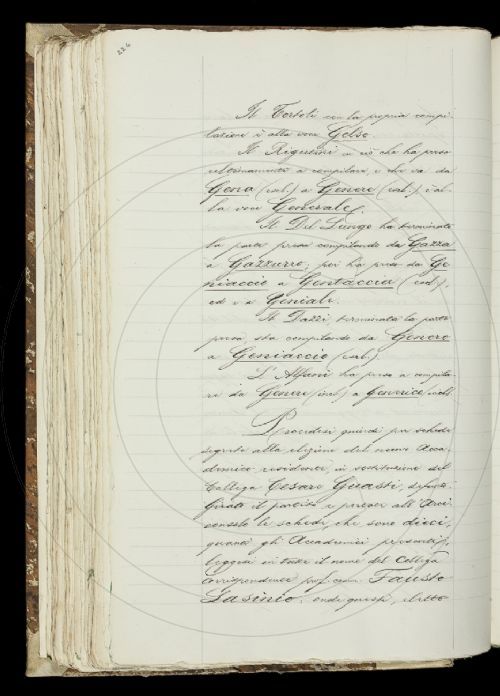 224
Il Tortoli con la propria compi-
lazione è alla voce Gelso.
Il Rigutini in ciò che ha preso
ultimamente a compilare, e che va da
Gena (incl.) a Genere (escl.) è al-
la voce Generale.
Il Del Lungo ha terminata
la parte presa compilando da Gazza
a Gazzurro; poi ha preso da Ge-
niaccio a Gentaccia (escl.),
ed è a Geniale.
Il Dazzi, terminata la parte
presa sta compilando da Genero
a Geniaccio (escl.)
L'Alfani ha preso a compila-
re da Genere (incl.) a Generico (escl.
Procedesi quindi per schede
segrete alla elezione del nuovo Acca-
demico residente, in sostituzione del
Collega Cesare Guasti, defunto.
Girato il partito e portate all'Arci-
consolo le schede, che sono dieci,
quanti gli Accademici presenti,
leggesi in tutte il nome del Collega
Corrispondente prof. cav. Fausto
Lasinio, onde questi, eletto